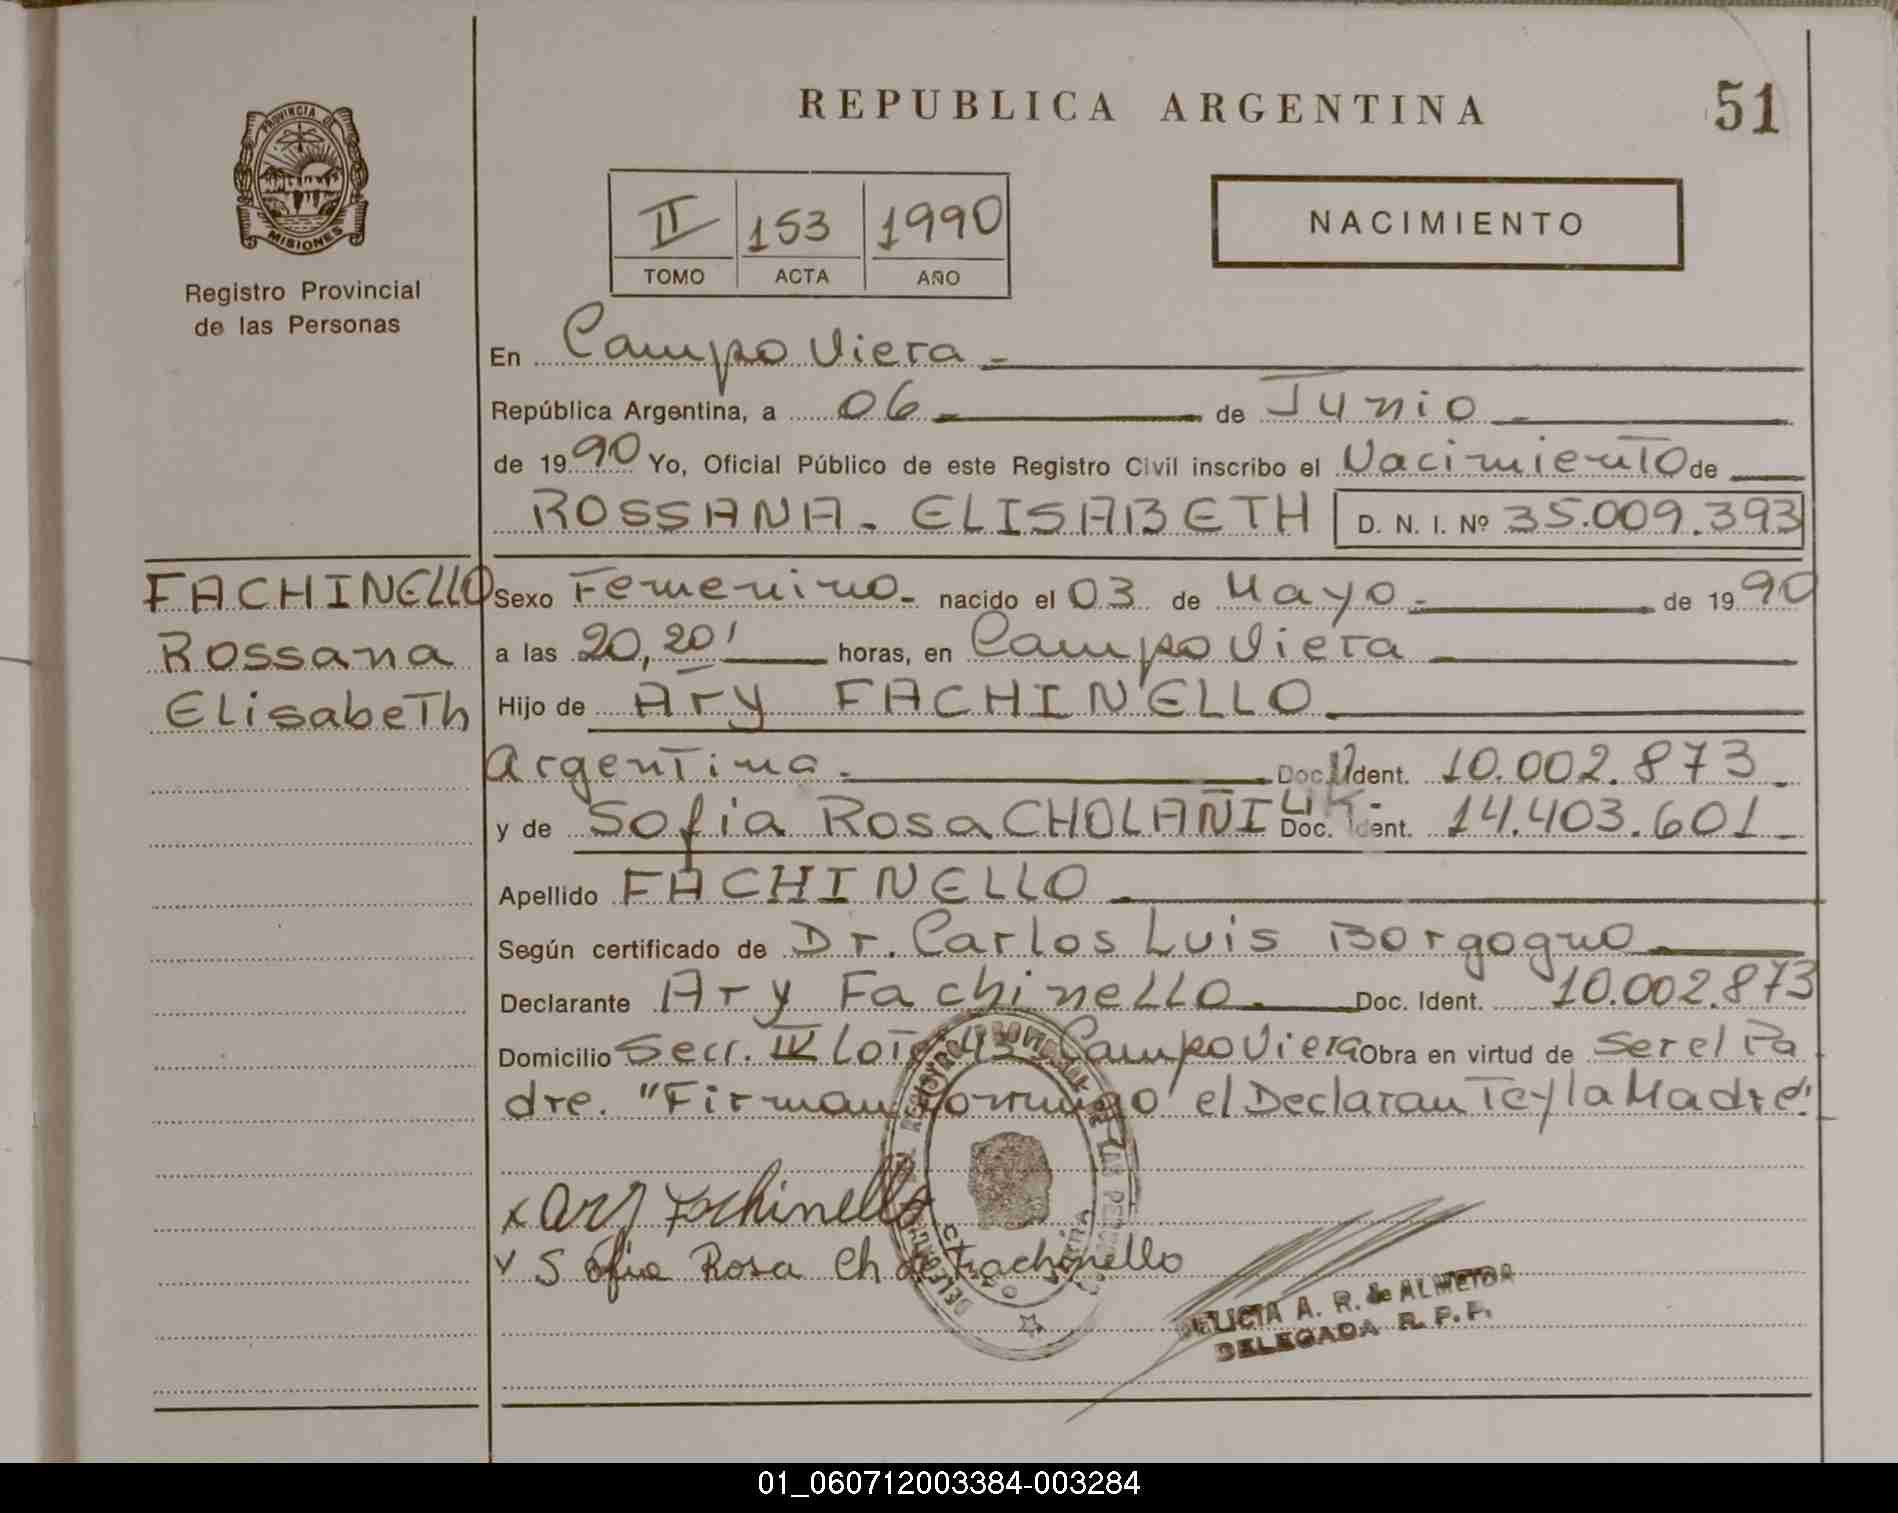 REPUBLICA ARGENTINA
51
PROVINCIA DE
MISIONES
Registro Provincial
de las Personas
II 153 1990
TOMO ACTA AÑO
NACIMIENTO
En Campo Viera
República Argentina, a 06 de Junio
de 1990 Yo, Oficial Público de este Registro Civil inscribo el Nacimiento de
ROSSANA - ELISABETH D. N. I. Nº 35.009.393
FACHINELLO
Rossana
Elisabeth
Sexo Femenino - nacido el 03 de Mayo - de 1990
a las 20,20' horas, en Campo Viera
Hijo de Ary FACHINELLO
Argentina. Doc. Ident. 10.002.873
y de Sofia Rosa CHOLAÑI Doc. Ident. 14.403.601
Apellido FACHINELLO
Según certificado de Dr. Carlos Luis Borgogno
Declarante Ary Fachinello. Doc. Ident. 10.002.873
Domicilio Secc. IV Lote 43 Campo Viera Obra en virtud de Ser el Pa
dre. "Firman conmigo el Declarante y la Madre".
x Ary Fachinello
v Sofia Rosa Ch de Fachinello
A. R. de ALMEIDA
DELEGADA R. P. P.
01_060712003384-003284